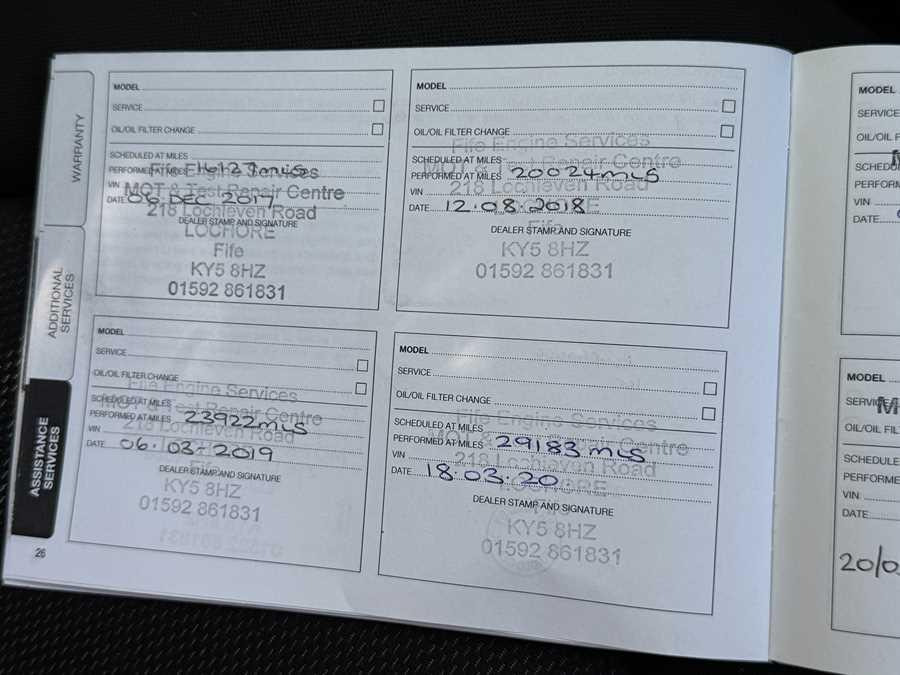 WARRANTY
ADDITIONAL SERVICES
ASSISTANCE SERVICES
MODEL
SERVICE
OIL/OIL FILTER CHANGE
SCHEDULED AT MILES
PERFORMED AT MILES
VIN
DATE 06 DEC 2017
DEALER STAMP AND SIGNATURE
Fife Engine Services
MOT & Test Repair Centre
218 Lochleven Road
LOCHORE
Fife
KY5 8HZ
01592 861831
MODEL
SERVICE
OIL/OIL FILTER CHANGE
SCHEDULED AT MILES
PERFORMED AT MILES 20024mls
VIN
DATE 12.08.2018
DEALER STAMP AND SIGNATURE
Fife Engine Services
MOT & Test Repair Centre
218 Lochleven Road
LOCHORE
Fife
KY5 8HZ
01592 861831
MODEL
SERVICE
OIL/OIL FILTER CHANGE
SCHEDULED AT MILES
PERFORMED AT MILES 23922mls
VIN
DATE 06.03.2019
DEALER STAMP AND SIGNATURE
Fife Engine Services
MOT & Test Repair Centre
218 Lochleven Road
KY5 8HZ
01592 861831
MODEL
SERVICE
OIL/OIL FILTER CHANGE
SCHEDULED AT MILES
PERFORMED AT MILES 29183mls
VIN
DATE 18.03.20
DEALER STAMP AND SIGNATURE
Fife Engine Services
MOT & Test Repair Centre
218 Lochleven Road
LOCHORE
Fife
KY5 8HZ
01592 861831
26
MODEL
SERVICE
OIL/OIL FI
SCHEDU
PERFORM
VIN
DATE
MODEL
SERVICE
OIL/OIL FILT
SCHEDULE
PERFORME
VIN
DATE
20/0